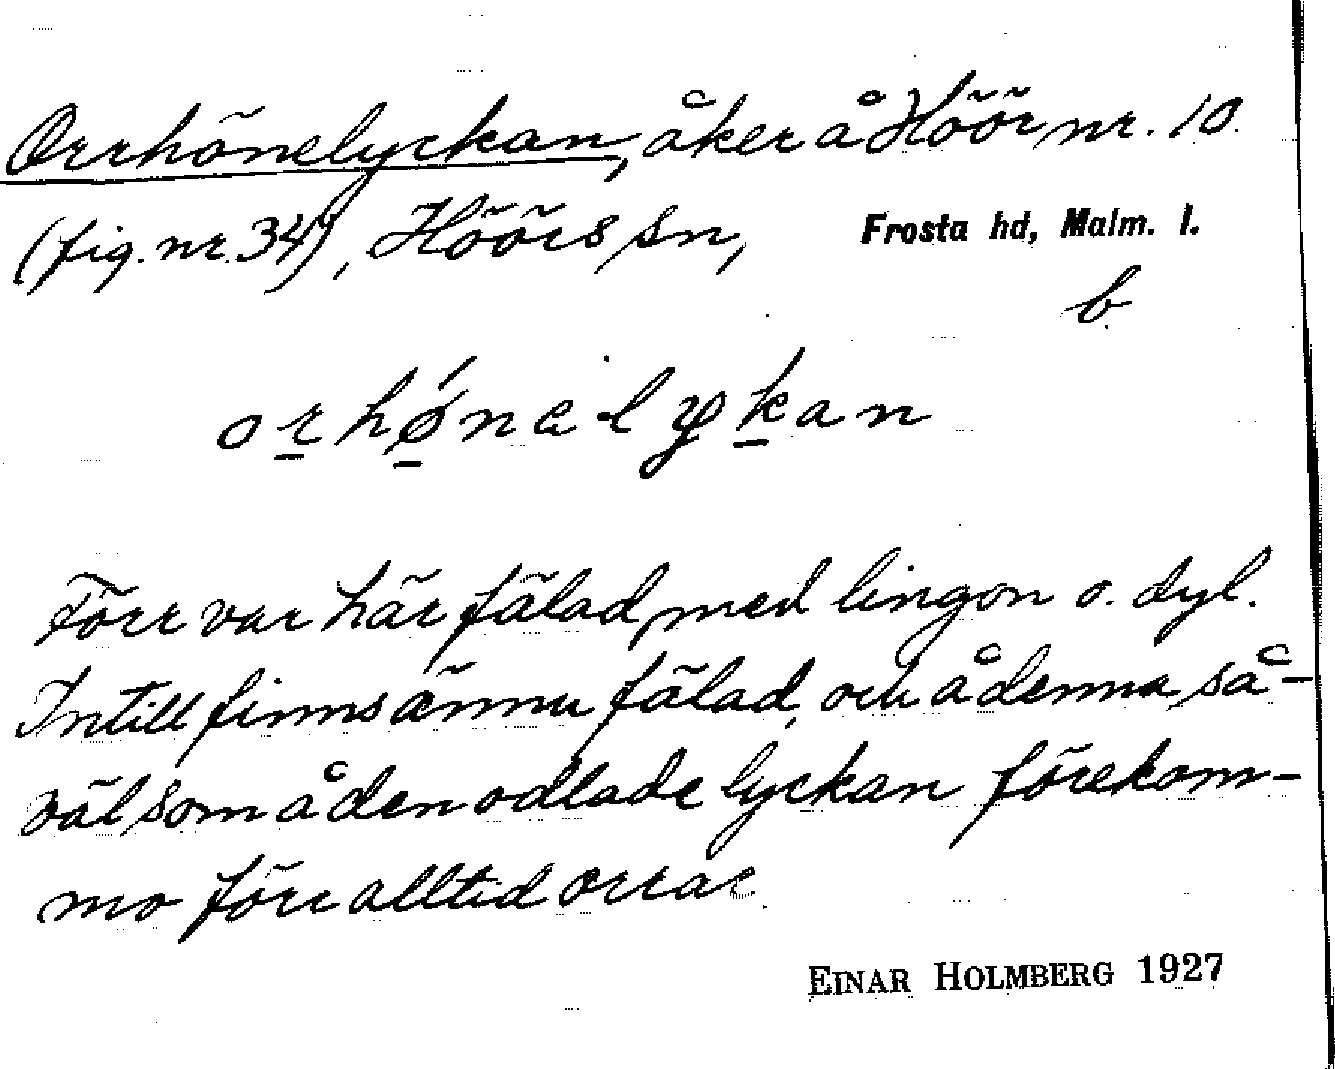 Orrhönelyckan, åker å Höör nr. 10
(fig. nr. 34), Höörs sn, Frosta hd, Malm. l.
b
orhǿnelykan
Förr var här fälad, med lingon o. dyl.
Intill finns ännu fälad, och å denna så-
väl som å den odlade lyckan förekom-
mo förr alltid orrar.
EINAR HOLMBERG 1927